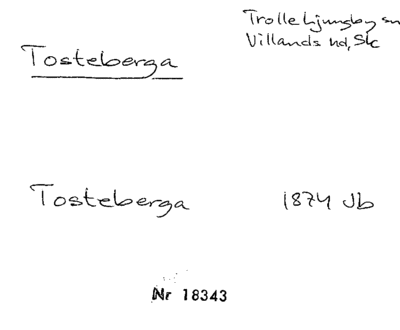 Trolle Ljungby sn
Villands hd, Skc
Tosteberga
Tosteberga 1874 Jb
Nr 18343